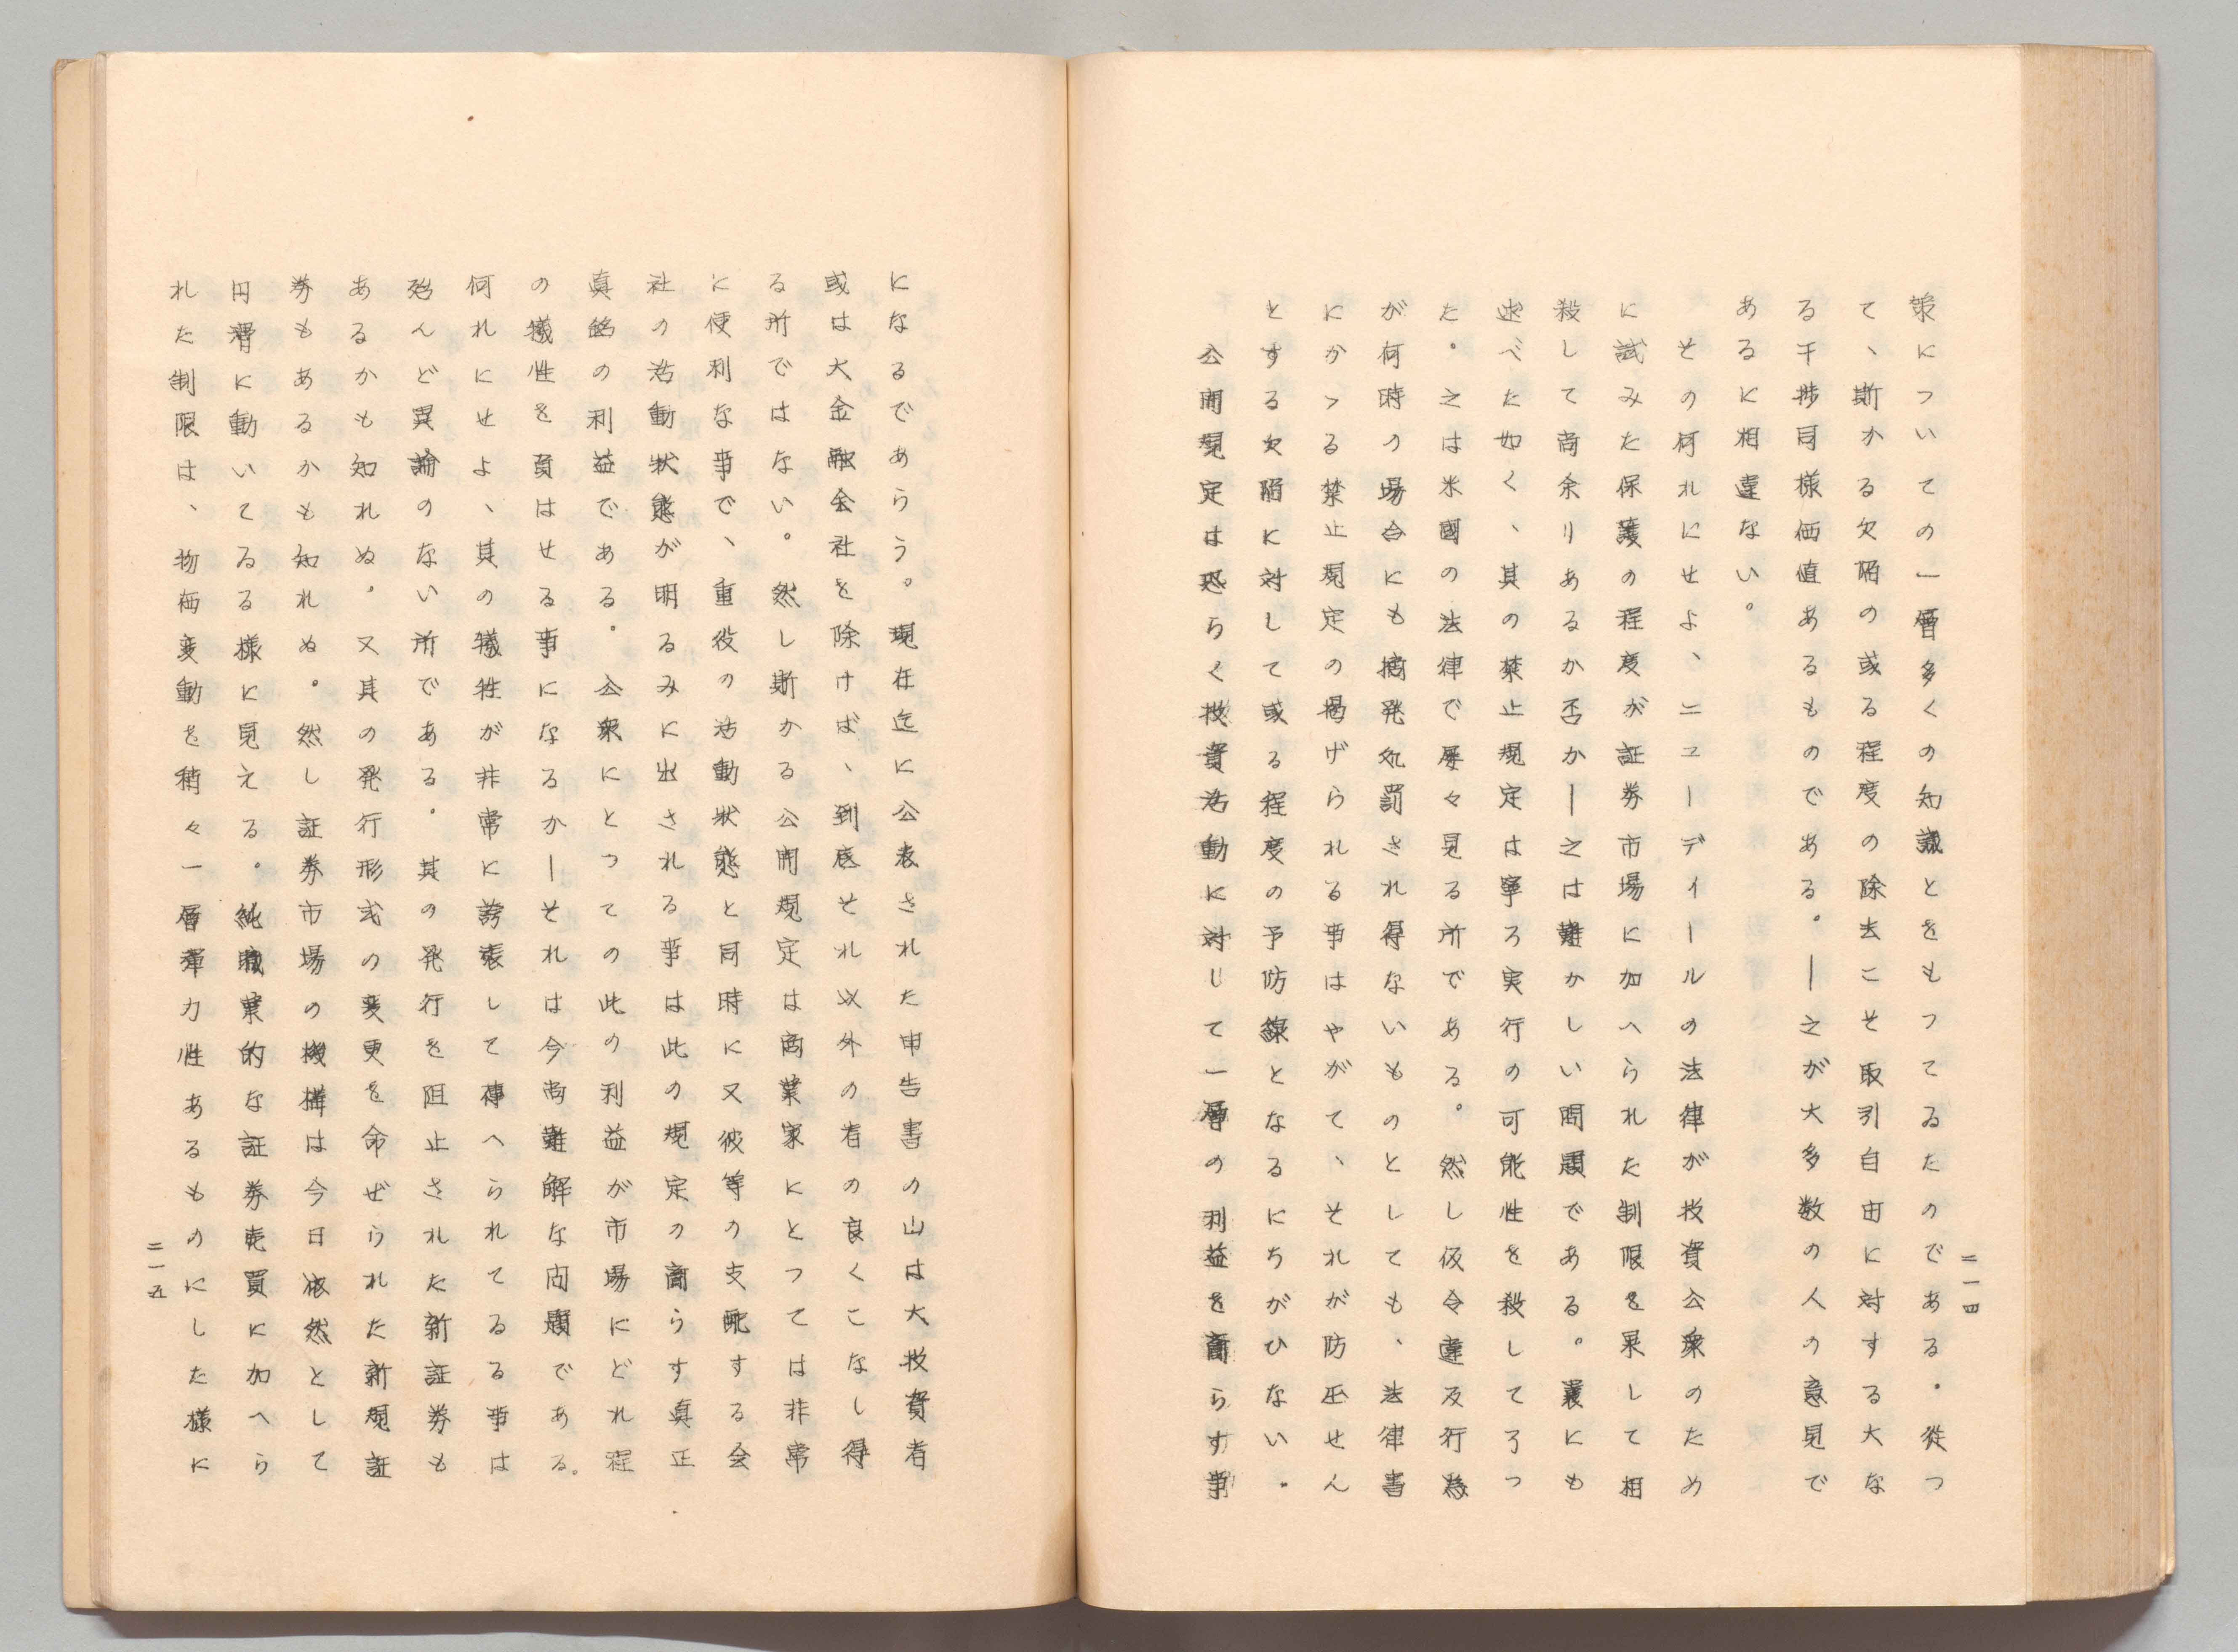 策についての一層多くの知識とをもつてゐたのである。従つ
て、斯かる欠陥の或る程度の除去こそ取引自由に対する大な
る干捗同様価値あるものである。―之が大多数の人の意見で
あるに相違ない。
その何れにせよ、ニューディールの法律が投資公衆のため
に試みた保護の程度が証券市場に加へられた制限を果して相
殺して尚余りあるか否か―之は難かしい問題である。裏にも
述べた如く、其の禁止規定は寧ろ実行の可能性を殺してろつ
た。之は米國の法律で屡々見る所である。然し仮令違反行為
が何時の場合にも摘発処罰され得ないものとしても、法律書
にかゝる禁止規定の掲げられる事はやがて、それが防圧せん
とする欠陥に対して或る程度の予防線となるにちがひない。
公開規定は恐らく投資活動に対して一層の利益を齎らす事
二一四
になるであらう。現在迄に公表された申告書の山は大投資者
或は大金融会社を除けば、到底それ以外の者の良くこなし得
る所ではない。然し斯かる公開規定は商業家にとつては非常
に便利な事で、重役の活動状態と同時に又彼等の支配する会
社の活動状態が明るみに出される事は此の規定の齎らす真正
真銘の利益である。公衆にとつての此の利益が市場にどれ程
の犠性を負はせる事になるか―それは今尚難解な問題である。
何れにせよ、其の犠牲が非常に誇張して傳へられてゐる事は
殆んど異論のない所である。其の発行を阻止された新証券も
あるかも知れぬ。又其の発行形式の変更を命ぜられた新規証
券もあるかも知れぬ。然し証券市場の機構は今日依然として
円滑に動いてゐる様に見える。純職業的な証券売買に加へら
れた制限は、物価変動を稍々一層弾力性あるものにした様に
二一五